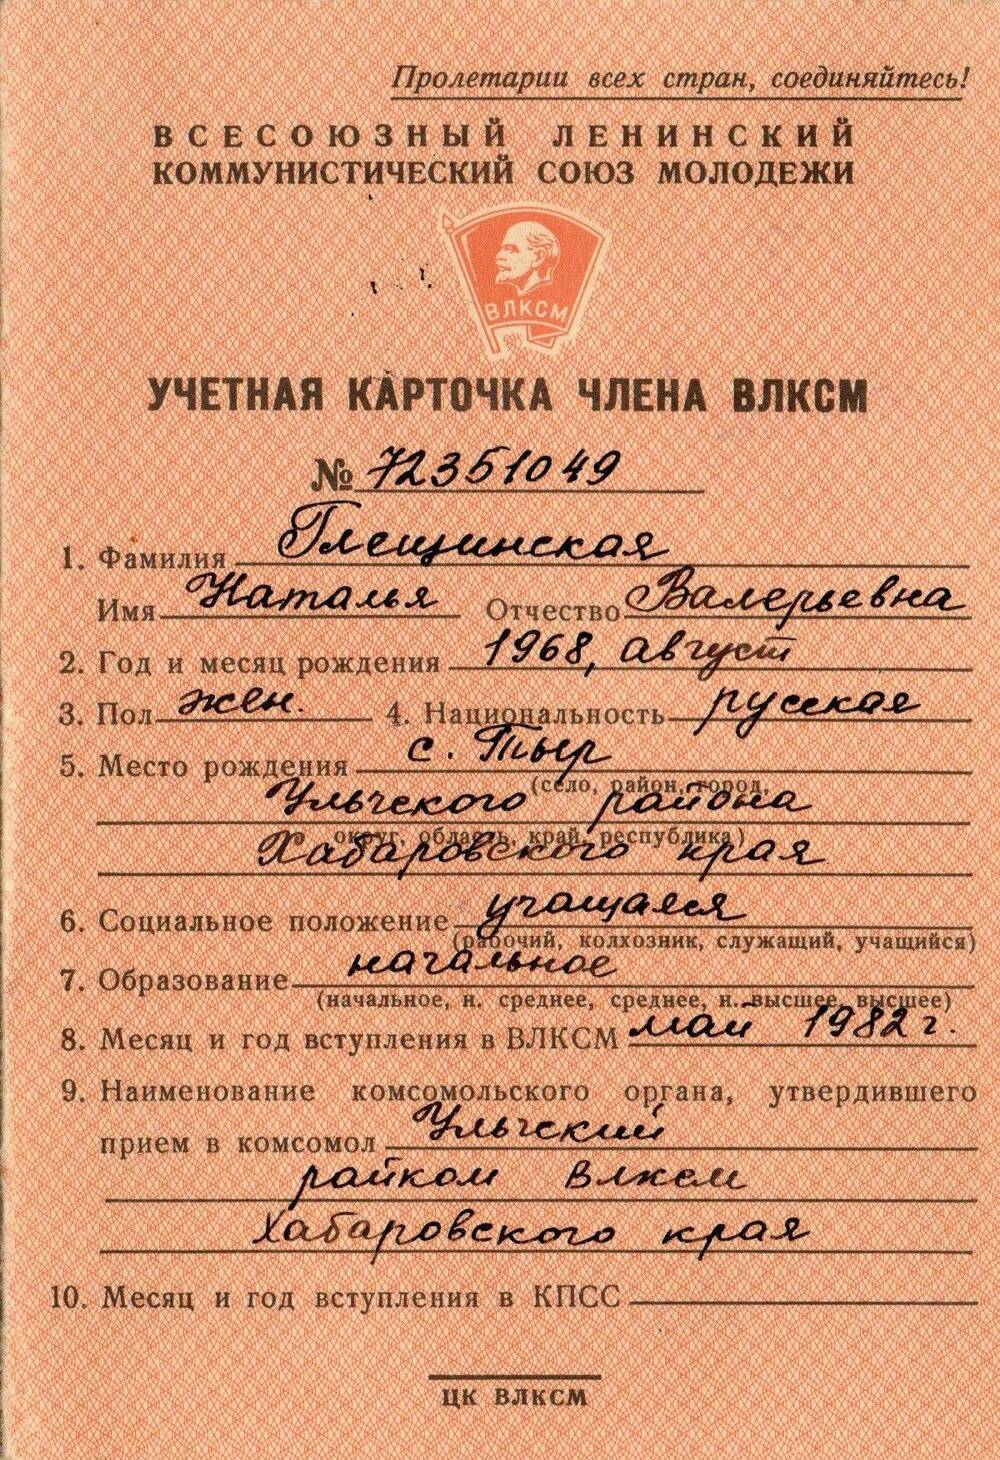 Пролетарии всех стран, соединяйтесь!
ВСЕСОЮЗНЫЙ ЛЕНИНСКИЙ
КОММУНИСТИЧЕСКИЙ СОЮЗ МОЛОДЕЖИ
ВЛКСМ
УЧЕТНАЯ КАРТОЧКА ЧЛЕНА ВЛКСМ
№ 72351049
1. Фамилия Глещинская
Имя Наталья Отчество Валерьевна
2. Год и месяц рождения 1968, август
3. Пол жен. 4. Национальность русская
5. Место рождения с. Тыр
(село, район, город,
Ульчского района
округ, область, край, республика)
Хабаровского края
6. Социальное положение учащаяся
(рабочий, колхозник, служащий, учащийся)
7. Образование начальное
(начальное, н. среднее, среднее, н. высшее, высшее)
8. Месяц и год вступления в ВЛКСМ май 1982 г.
9. Наименование комсомольского органа, утвердившего
прием в комсомол Ульчский
райком ВЛКСМ
Хабаровского края
10. Месяц и год вступления в КПСС
ЦК ВЛКСМ